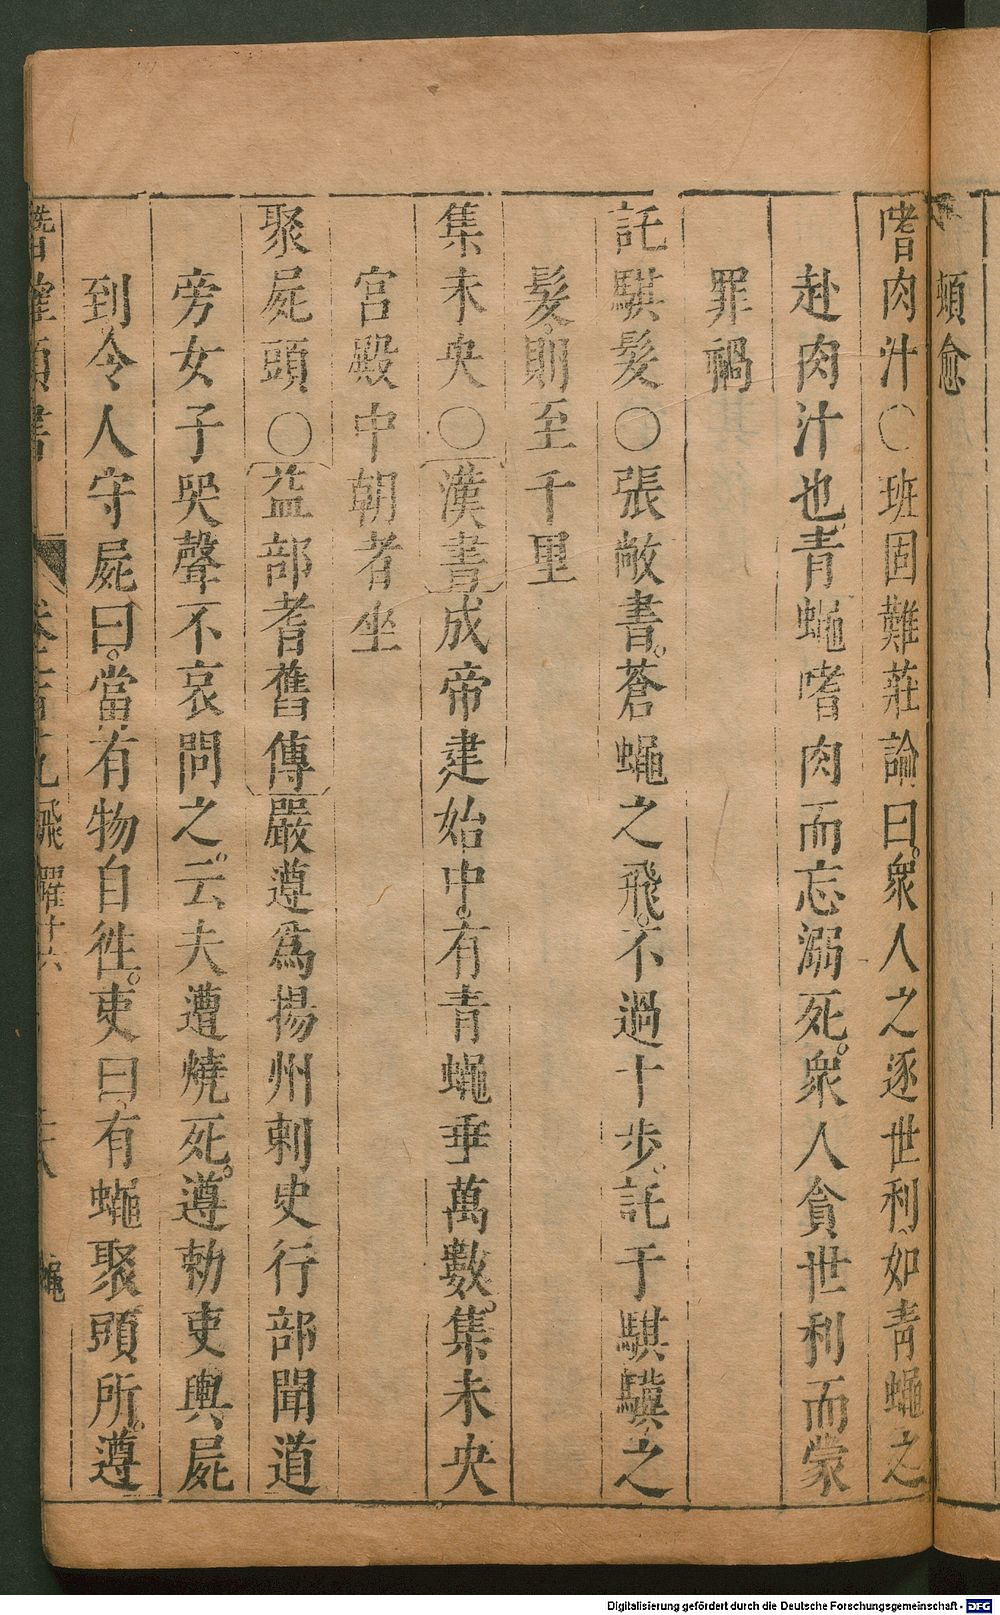 頰愈
嗜肉汁○班固難莊論曰。衆人之逐世利、如青蠅之
赴肉汁也、青蠅嗜肉而忘溺死。衆人貪世利而蒙
罪禍
託騏髮○張敞書。蒼蠅之飛。不過十步、託于騏驥之
髮、則至千里
集未央○漢書成帝建始中。有青蠅垂萬數。集未央
宮殿中朝者坐
聚屍頭○益部耆舊傳嚴遵爲揚州刺史行部聞道
旁女子哭聲不哀問之。云夫遭燒死。遵勅吏輿屍
到令人守屍曰。當有物自徃。吏曰有蠅聚頭所。遵
潛確類書
飛躍十六
蠅
Digitalisierung gefördert durch die Deutsche Forschungsgemeinschaft - DFG